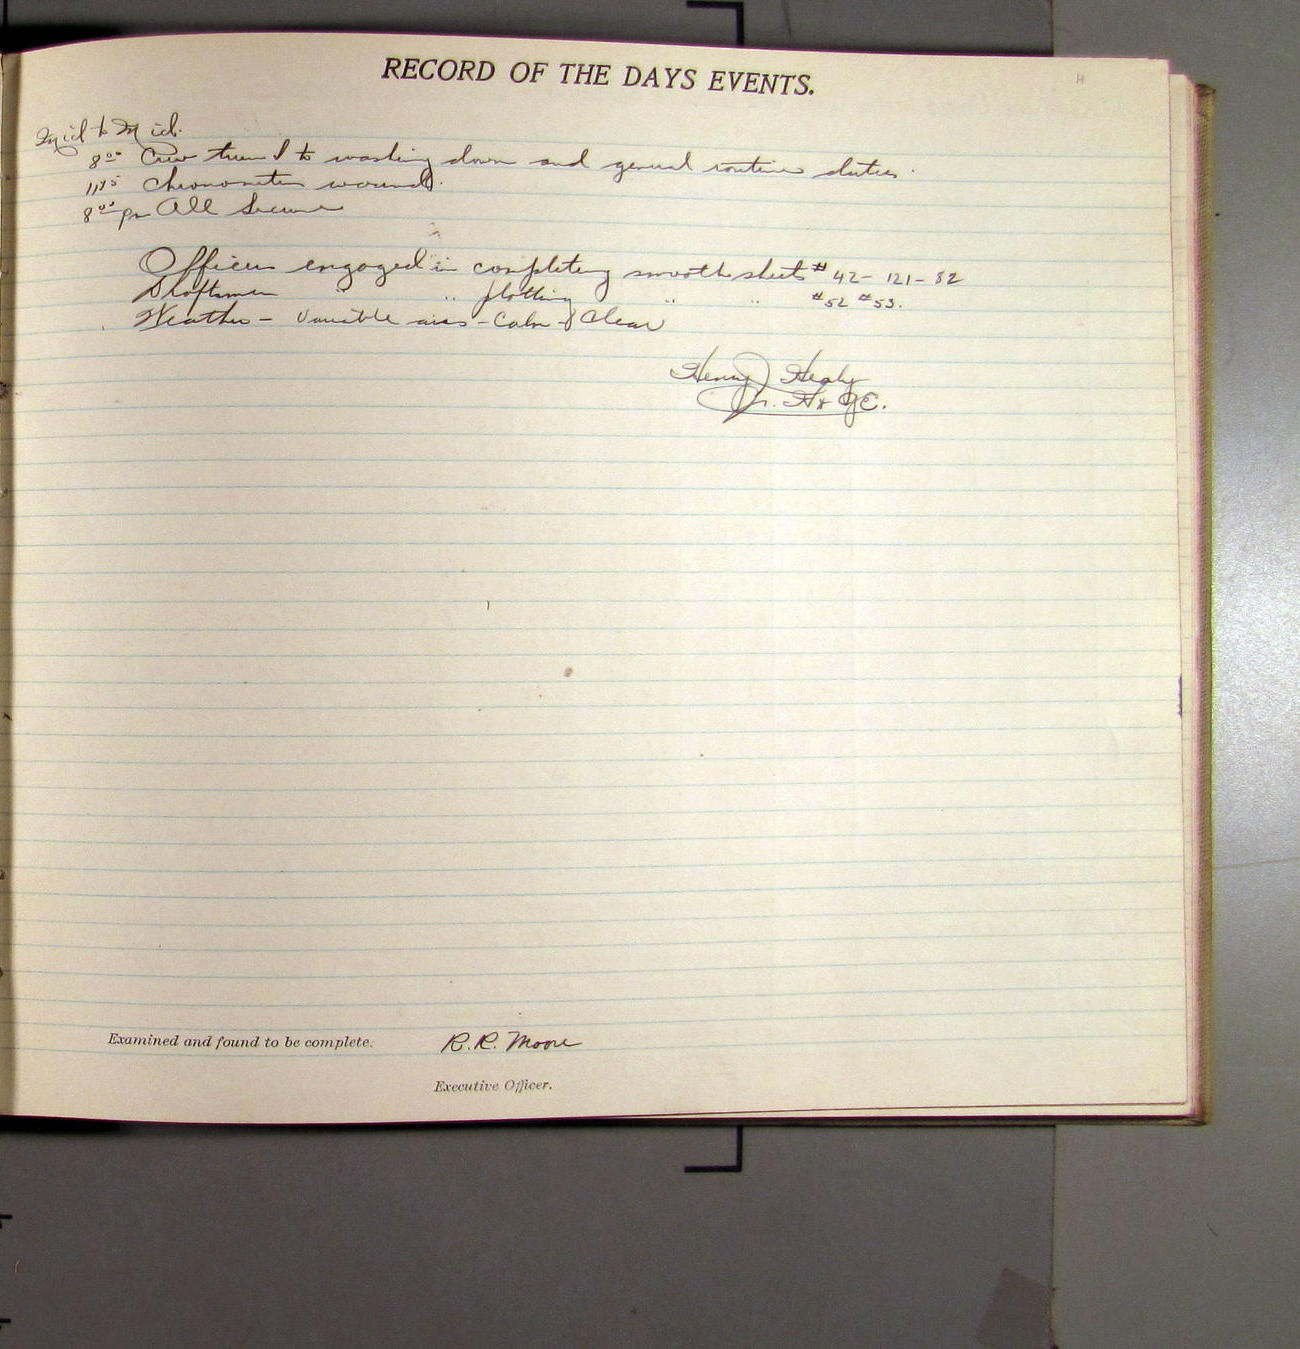 RECORD OF THE DAYS EVENTS.
Mid to Mid.
8⁰⁰ Crew turned to washing down and general routine duties.
11⁴⁵ Chronometers wound.
8⁰⁰ pm All Secure
Officers engaged in completing smooth sheets # 42 - 121 - 82
Draftsmen " " plotting " " #52 #53.
Weather - Variable airs - Calm - Clear
Henry J Healy
Jr. H & G E.
Examined and found to be complete.
R. R. Moore
Executive Officer.